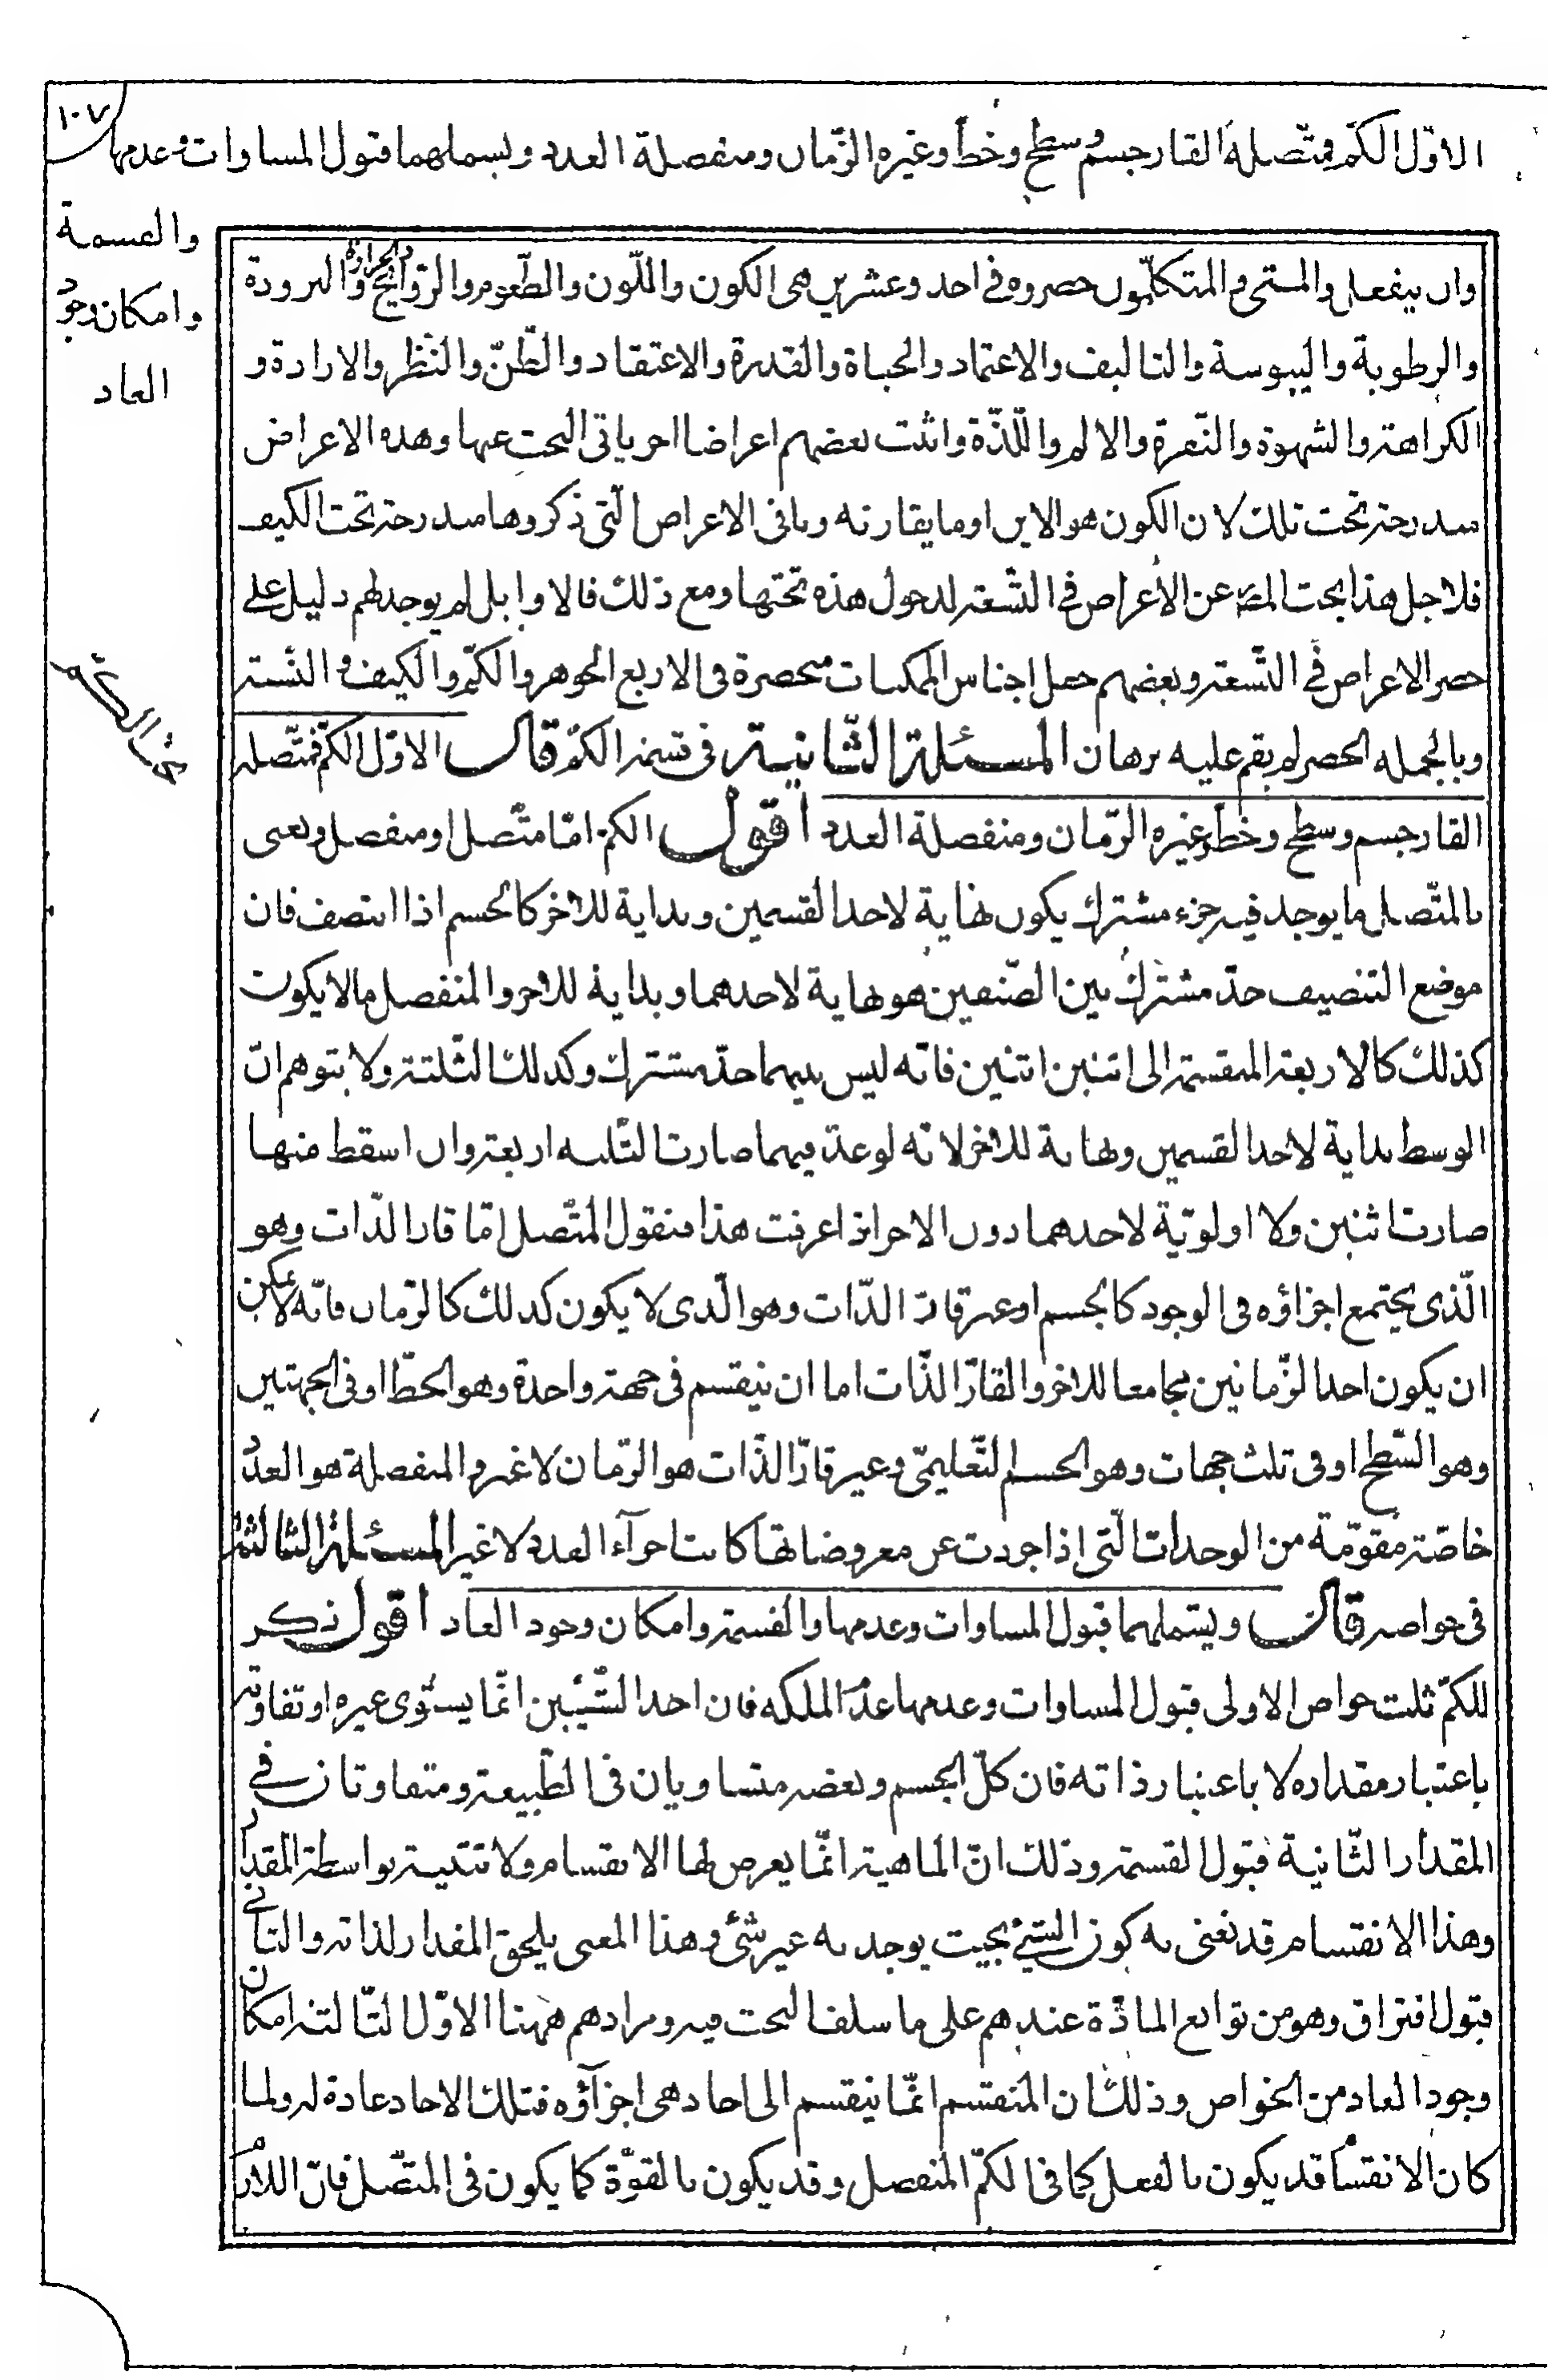 ١٠٧
الاوّل الكمّ فمتّصله القار جسم وسطح وخط وغيره الزّمان ومنفصلة العدد ويشملهما قبول المساوات وعدمها
والقسمة
وامكان وجود
العاد
وان ينفعل والمتى والمتكلّمون حصروه فى احد وعشرين هى الكون واللّون والطّعوم والرّوايح والحرارة والبرودة
والرطوبة واليبوسة والتاليف والاعتماد والحياة والقدرة والاعتقاد والظّنّ والنّظر والارادة و
الكراهة والشهوة والنّفرة والالم واللّذّة واثبت بعضهم اعراضا اخر ياتى البحث عنها وهذه الاعراض
مندرجة تحت تلك لان الكون هو الاين او ما يقارنه وباقى الاعراض الّتى ذكروها مندرجة تحت الكيف
فلاجل هذا بحث المصّ عن الاعراض فى التّسعة لدخول هذه تحتها ومع ذلك فالاوايل لم يوجد لهم دليل على
حصر الاعراض فى التّسعة وبعضهم جعل اجناس الممكنات منحصرة فى الاربع الجوهر والكمّ والكيف والنّسبة
وبالجمله الحصر لم يقم عليه برهان المسئلة الثّانية فى قسمة الكمّ قال الاوّل الكمّ فمتّصله
القار جسم وسطح وخط وغيره الزّمان ومنفصلة العدد اقول الكم امّا متّصل او منفصل ونعنى
بالمتّصل ما يوجد فيه جزء مشترك يكون نهاية لاحد القسمين وبداية للاخر كالجسم اذا انتصف فان
موضع التنصيف حدّ مشترك بين الصّنفين هو نهاية لاحدهما وبداية للاخر والمنفصل ما لا يكون
كذلك كالاربعة المنقسمة الى اثنين اثنين فانّه ليس بينهما حدّ مشترك وكذلك الثّلثة ولا يتوهم انّ
الوسط بداية لاحد القسمين ونهاية للاخر لانّه لو عدّ فيهما صارت الثّلثه اربعة وان اسقط منها
صارت اثنين ولا اولويّة لاحدهما دون الاخر اذ اعرفت هذا فنقول المتّصل امّا قار الذّات وهو
الّذى يجتمع اجزاؤه فى الوجود كالجسم او غير قارّ الذّات وهو الّذى لا يكون كذلك كالزّمان فانّه لا يمكن
ان يكون احد الزّمانين مجامعا للاخر والقارّ الذّات اما ان ينقسم فى جهة واحدة وهو الخطّ او فى الجهتين
وهو السّطح او فى ثلث جهات وهو الجسم التّعليمىّ وغير قارّ الذّات هو الزّمان لا غير والمنفصلة هو العدد
خاصّة مقوّمة من الوحدات الّتى اذا جردت عن معروضاتها كانت اجزآء العدد لا غير المسئلة الثالثة
فى خواصه قال ويشملهما قبول المساوات وعدمها والقسمة وامكان وجود العاد اقول ذكر
للكمّ ثلث خواص الاولى قبول المساوات وعدمها عدم الملكه فان احد الشّيئين انّما يستوى غيره او تفاوته
باعتبار مقداره لا باعتبار ذاته فان كلّ الجسم وبعضه متساويان فى الطّبيعة ومتفاوتان فى
المقدار الثّانية قبول القسمة وذلك انّ الماهية انّما يعرض لها الانقسام والاثنينية بواسطة المقدار
وهذا الانقسام قد نعنى به كون الشىء بحيث يوجد به غير شىء وهذا المعنى يلحق المقدار لذاته والثانى
قبول افتراق وهو من توابع المادّة عندهم على ما سلف البحث فيه ومرادهم ههنا الاوّل الثّالثة امكان
وجود العاد من الخواص وذلك ان المنقسم انّما ينقسم الى احاد هى اجزآؤه فتلك الاحاد عادة له ولما
كان الانقسام قد يكون بالفعل كما فى الكمّ المنفصل وقد يكون بالقوّة كما يكون فى المتّصل فانّ اللازم
بحث الكم